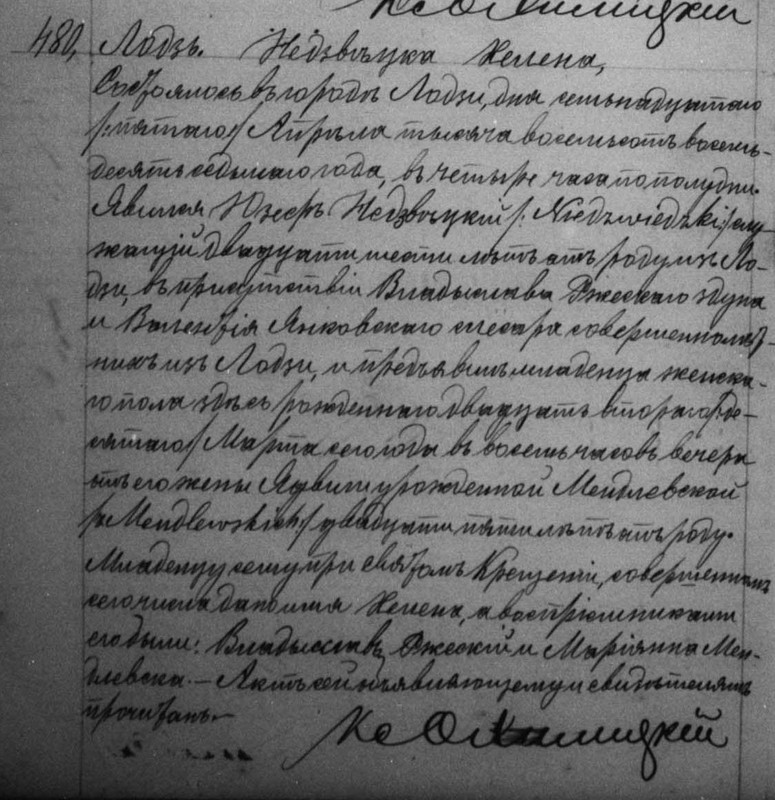 480, Лодзь. Недзвѣцка Хелена,
Состоялось въ городѣ Лодзи, дня семьнадцатаго
/:пятаго/ Апрѣля тысяча восемьсотъ восемь-
десятъ седьмаго года, въ четыре часа по полудни.
Явился Юзефъ Недзвѣцкій /: Niedzwiedzki:/ слу-
жащій двадцати шести лѣтъ отъ роду изъ Ло-
дзи, въ присутствіи Владыслава Ржескаго здуна
и Валентія Янковскаго слесара совершеннолѣт-
нихъ изъ Лодзи, и предъявилъ младенца женска-
го пола здѣсь рожденнаго двадцать втораго /:де-
сятаго/ Марта сего года въ восемь часовъ вечера
отъ его жены Ядвиги урожденной Мендлевской
/:Mendlewskich:/ двадцати пяти лѣтъ отъ роду.
Младенцу сему при святомъ Крещеніи, совершенномъ
сего числа дано имя Хелена, а воспріемниками
его были: Владыславъ Ржескій и Маріянна Мен-
длевска. — Актъ сей объявляющему и свидѣтелямъ
прочитанъ. —